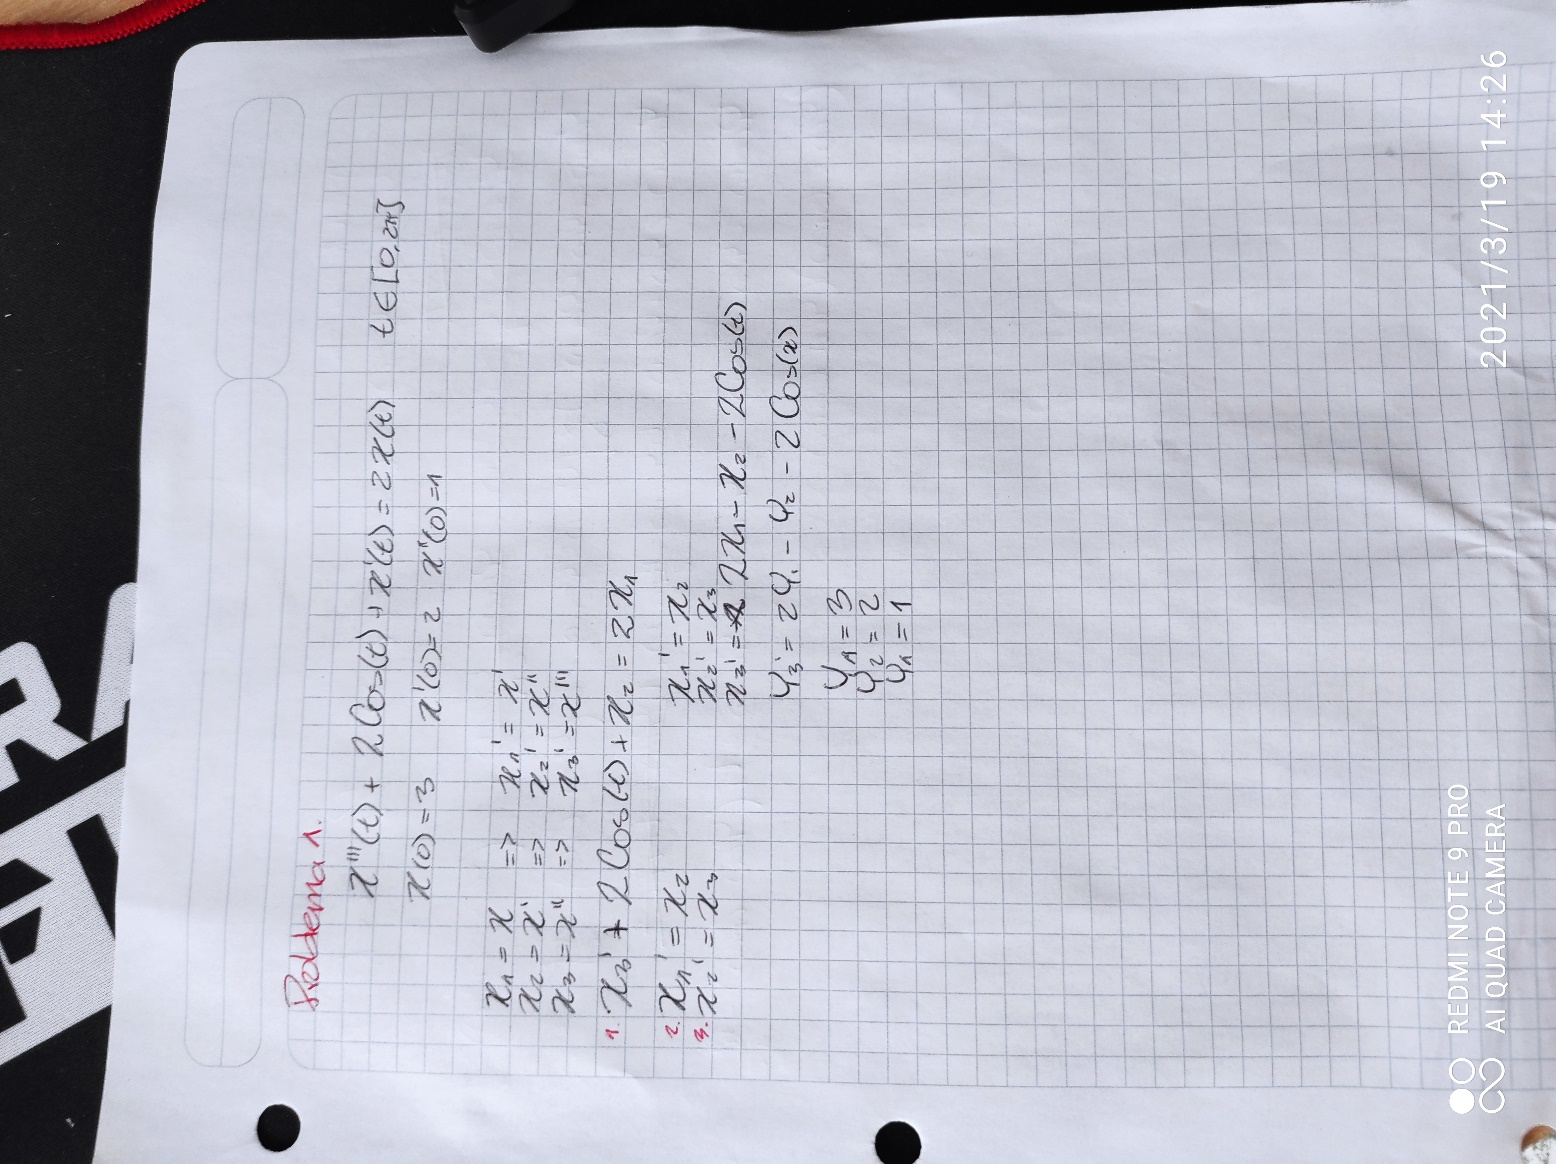 Problema 1.
x'''(t) + 2Cos(t) + x'(t) = 2x(t) t ∈ [0, 2π]
x(0) = 3 x'(0) = 2 x''(0) = 1
x1 = x => x1' = x'
x2 = x' => x2' = x''
x3 = x'' => x3' = x'''
1. x3' + 2Cos(t) + x2 = 2x1
2. x1' = x2 x1' = x2
3. x2' = x3 x2' = x3
x3' = 2x1 - x2 - 2Cos(t)
y3' = 2y1 - y2 - 2Cos(x)
y1 = 3
y2 = 2
y1 = 1
REDMI NOTE 9 PRO
AI QUAD CAMERA
2021/3/19 14:26